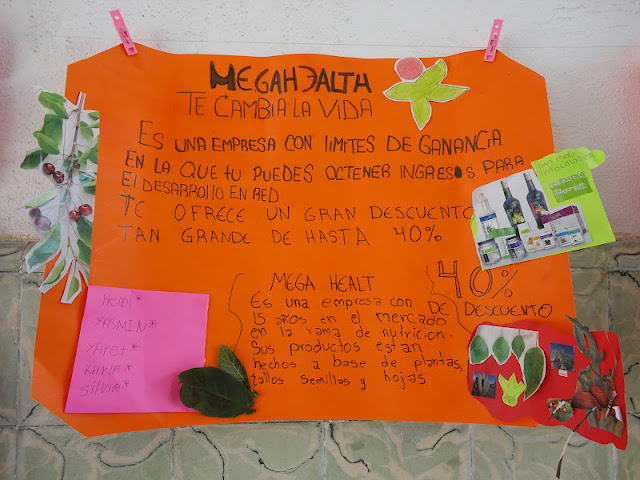 MEGAHEALTH
TE CAMBIA LA VIDA
ES UNA EMPRESA CON LIMITES DE GANANCIA
EN LA QUE TU PUEDES OCTENER INGRESOS PARA
El DESARROLLO EN RED
TE OFRECE UN GRAN DESCUENTO
TAN GRANDE DE HASTA 40%
MEGA HEALT
Es una empresa con DE
15 años en el mercado
en la rama de nutricion.
Sus productos estan
hechos a base de plantas,
tallos semillas y hojas
40%
DESCUENTO
HEIDI*
YASMIN*
YARET*
KARINA*
SILVIA*